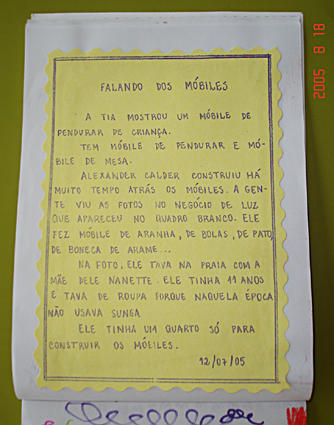 2005 8 18
FALANDO DOS MÓBILES
A TIA MOSTROU UM MÓBILE DE
PENDURAR DE CRIANÇA.
TEM MÓBILE DE PENDURAR E MÓ-
BILE DE MESA.
ALEXANDER CALDER CONSTRUIU HÁ
MUITO TEMPO ATRÁS OS MÓBILES. A GEN-
TE VIU AS FOTOS NO NEGÓCIO DE LUZ
QUE APARECEU NO QUADRO BRANCO. ELE
FEZ MÓBILE DE ARANHA, DE BOLAS, DE PATO,
DE BONECA DE ARAME...
NA FOTO, ELE TAVA NA PRAIA COM A
MÃE DELE NANETTE. ELE TINHA 11 ANOS
E TAVA DE ROUPA PORQUE NAQUELA ÉPOCA
NÃO USAVA SUNGA
ELE TINHA UM QUARTO SÓ PARA
CONSTRUIR OS MÓBILES.
12/07/05